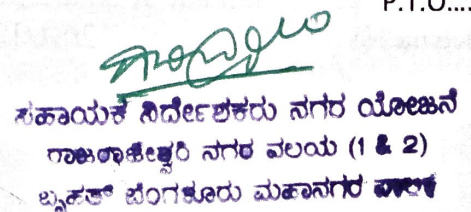 P.T.O....
ಸಹಾಯಕ ನಿರ್ದೇಶಕರು ನಗರ ಯೋಜನೆ
ರಾಜರಾಜೇಶ್ವರಿ ನಗರ ವಲಯ (1 & 2)
ಬೃಹತ್ ಬೆಂಗಳೂರು ಮಹಾನಗರ ಪಾಲಿಕೆ